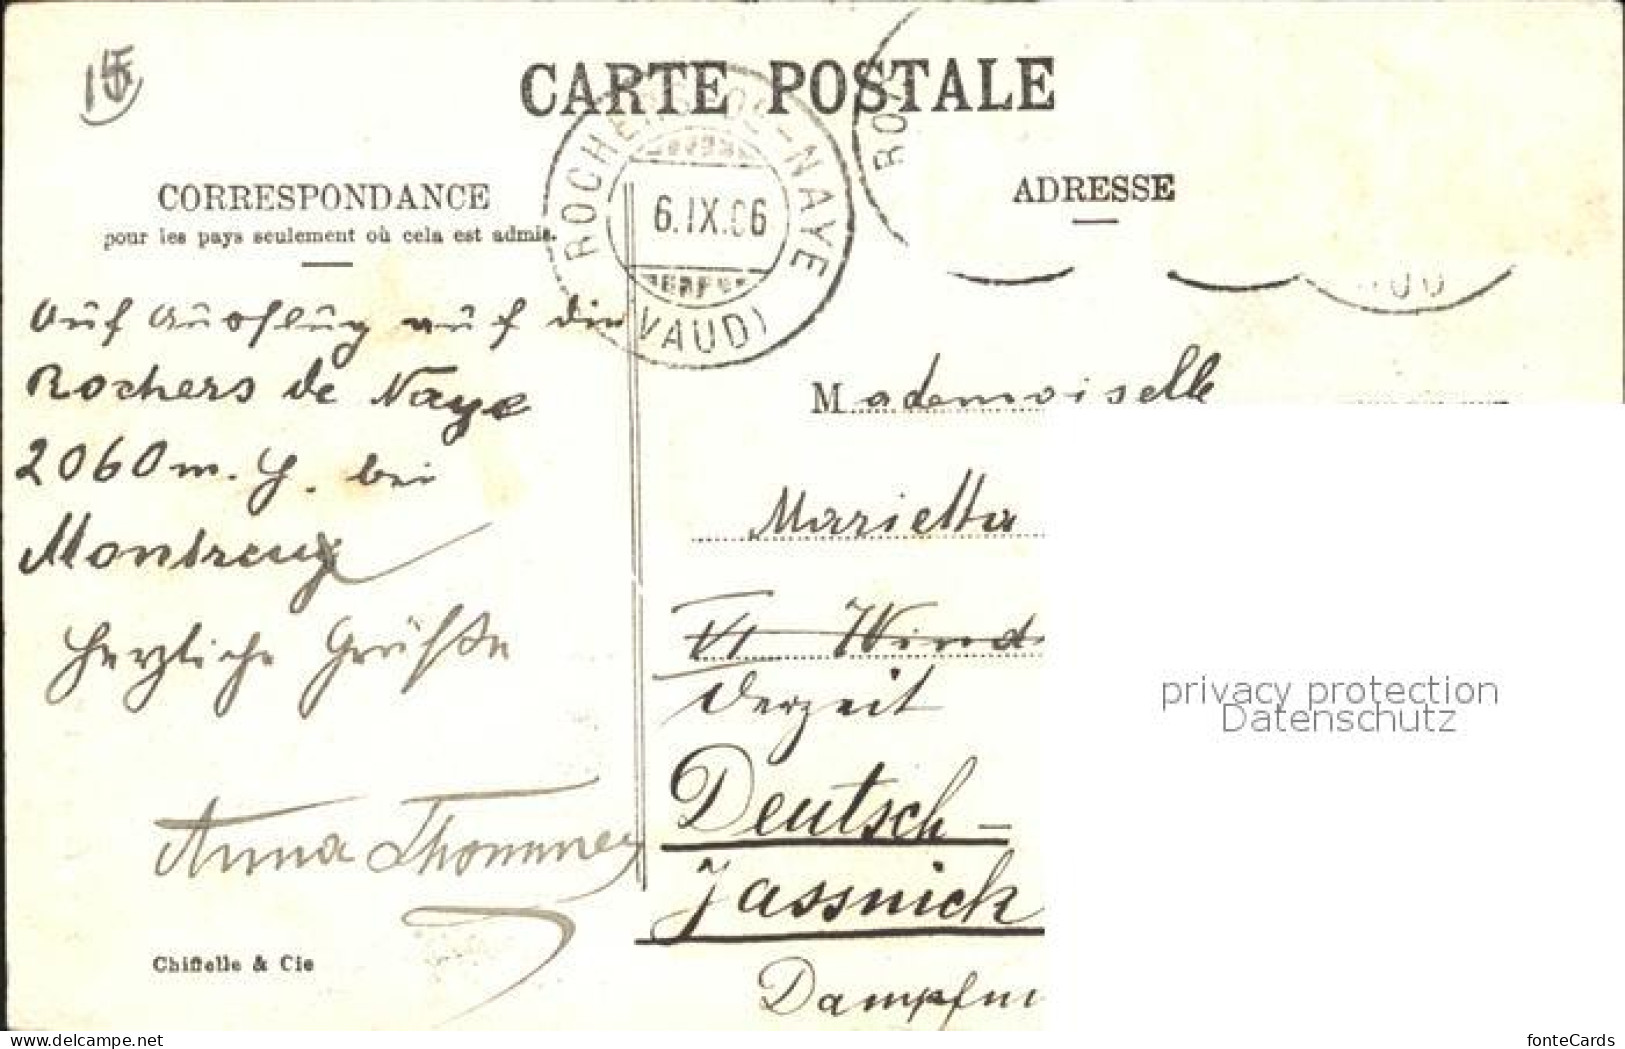 15
CARTE POSTALE
ROCHERS-DE-NAYE
6.IX.06
(VAUD)
RO
CORRESPONDANCE
pour les pays seulement où cela est admis.
ADRESSE
Auf Ausflug auf die
Rochers de Naye
2060 m. H. bei
Montreux
Herzliche Grüße
Anna Thommey
Chiffelle & Cie
Mademoiselle
Marietta
VI Wind
derzeit
Deutsch-
Jassnick
Dampfm
privacy protection
Datenschutz
www.delcampe.net
fonteCards